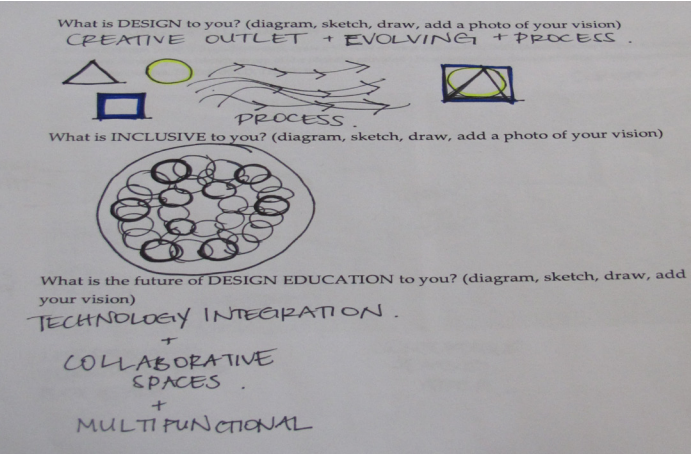 What is DESIGN to you? (diagram, sketch, draw, add a photo of your vision)
CREATIVE OUTLET + EVOLVING + PROCESS.
PROCESS.
What is INCLUSIVE to you? (diagram, sketch, draw, add a photo of your vision)
What is the future of DESIGN EDUCATION to you? (diagram, sketch, draw, add
your vision)
TECHNOLOGY INTEGRATION.
+
COLLABORATIVE
SPACES.
+
MULTIFUNCTIONAL